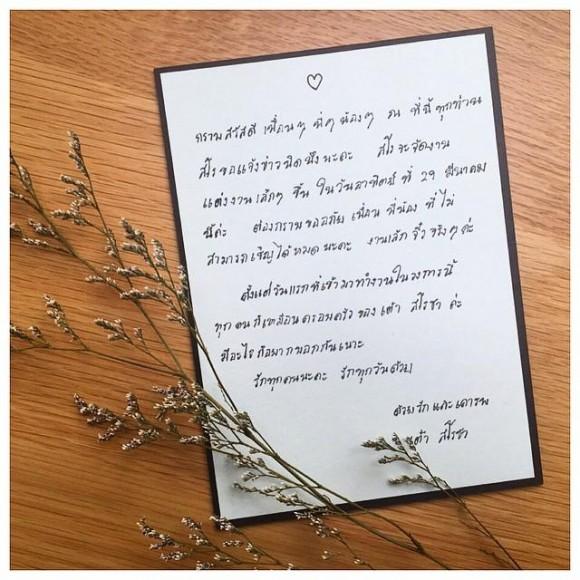 กราบสวัสดี เพื่อนๆ พี่ๆ น้องๆ ณ ที่นี้ทุกท่าน
สโร ขอแจ้งข่าวนิดนึงนะคะ สโร จะจัดงาน
แต่งงานเล็กๆ ขึ้น ในวันอาทิตย์ ที่ 29 มีนาคม
นี้ค่ะ ต้องกราบขออภัย เพื่อน พี่น้อง ที่ไม่
สามารถเชิญได้หมดนะคะ งานเล็ก จิ๋ว จริงๆ ค่ะ
ตั้งแต่วันแรกที่เข้ามาทำงานในวงการนี้
ทุกคนก็เหมือนครอบครัว ของเต้า สโรชา ค่ะ
มีอะไรก็อยากบอกกันเนาะ
รักทุกคนนะคะ รักทุกวันด้วย
ด้วยรักและเคารพ
เต้า สโรชา